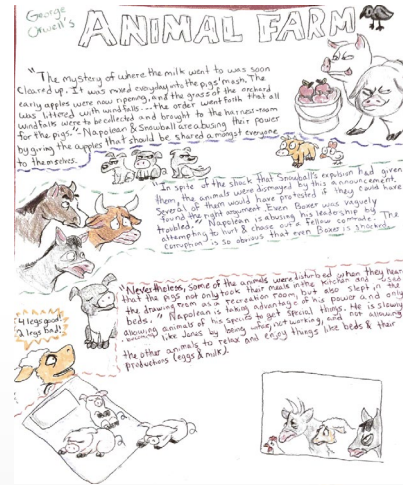 George
Orwell's
ANIMAL FARM
"The mystery of where the milk went to was soon
cleared up. It was mixed everyday into the pigs' mash. The
early apples were now ripening, and the grass of the orchard
was littered with windfalls ... the order went forth that all
windfalls were to be collected and brought to the harness-room
for the pigs." Napolean & Snowball are abusing their power
by giving the apples that should be shared amongst everyone
to themselves.
"In spite of the shock that Snowball's expulsion had given
them, the animals were dismayed by this announcement.
Several of them would have protested if they could have
found the right argument. Even Boxer was vaguely
troubled." Napolean is abusing his leadership by
attempting to hurt & chase out a fellow comrade. The
corruption is so obvious that even Boxer is shocked.
4 legs good
2 legs bad!
"Nevertheless, some of the animals were disturbed when they hear
that the pigs not only took their meals in the kitchen and used
the drawing room as a recreation room, but also slept in the
beds." Napolean is taking advantage of his power and only
allowing animals of his species to get special things. He is slowly
like Jones by being not working, and not allowing
the other animals to relax and enjoy things like beds & their
productions (eggs & milk).